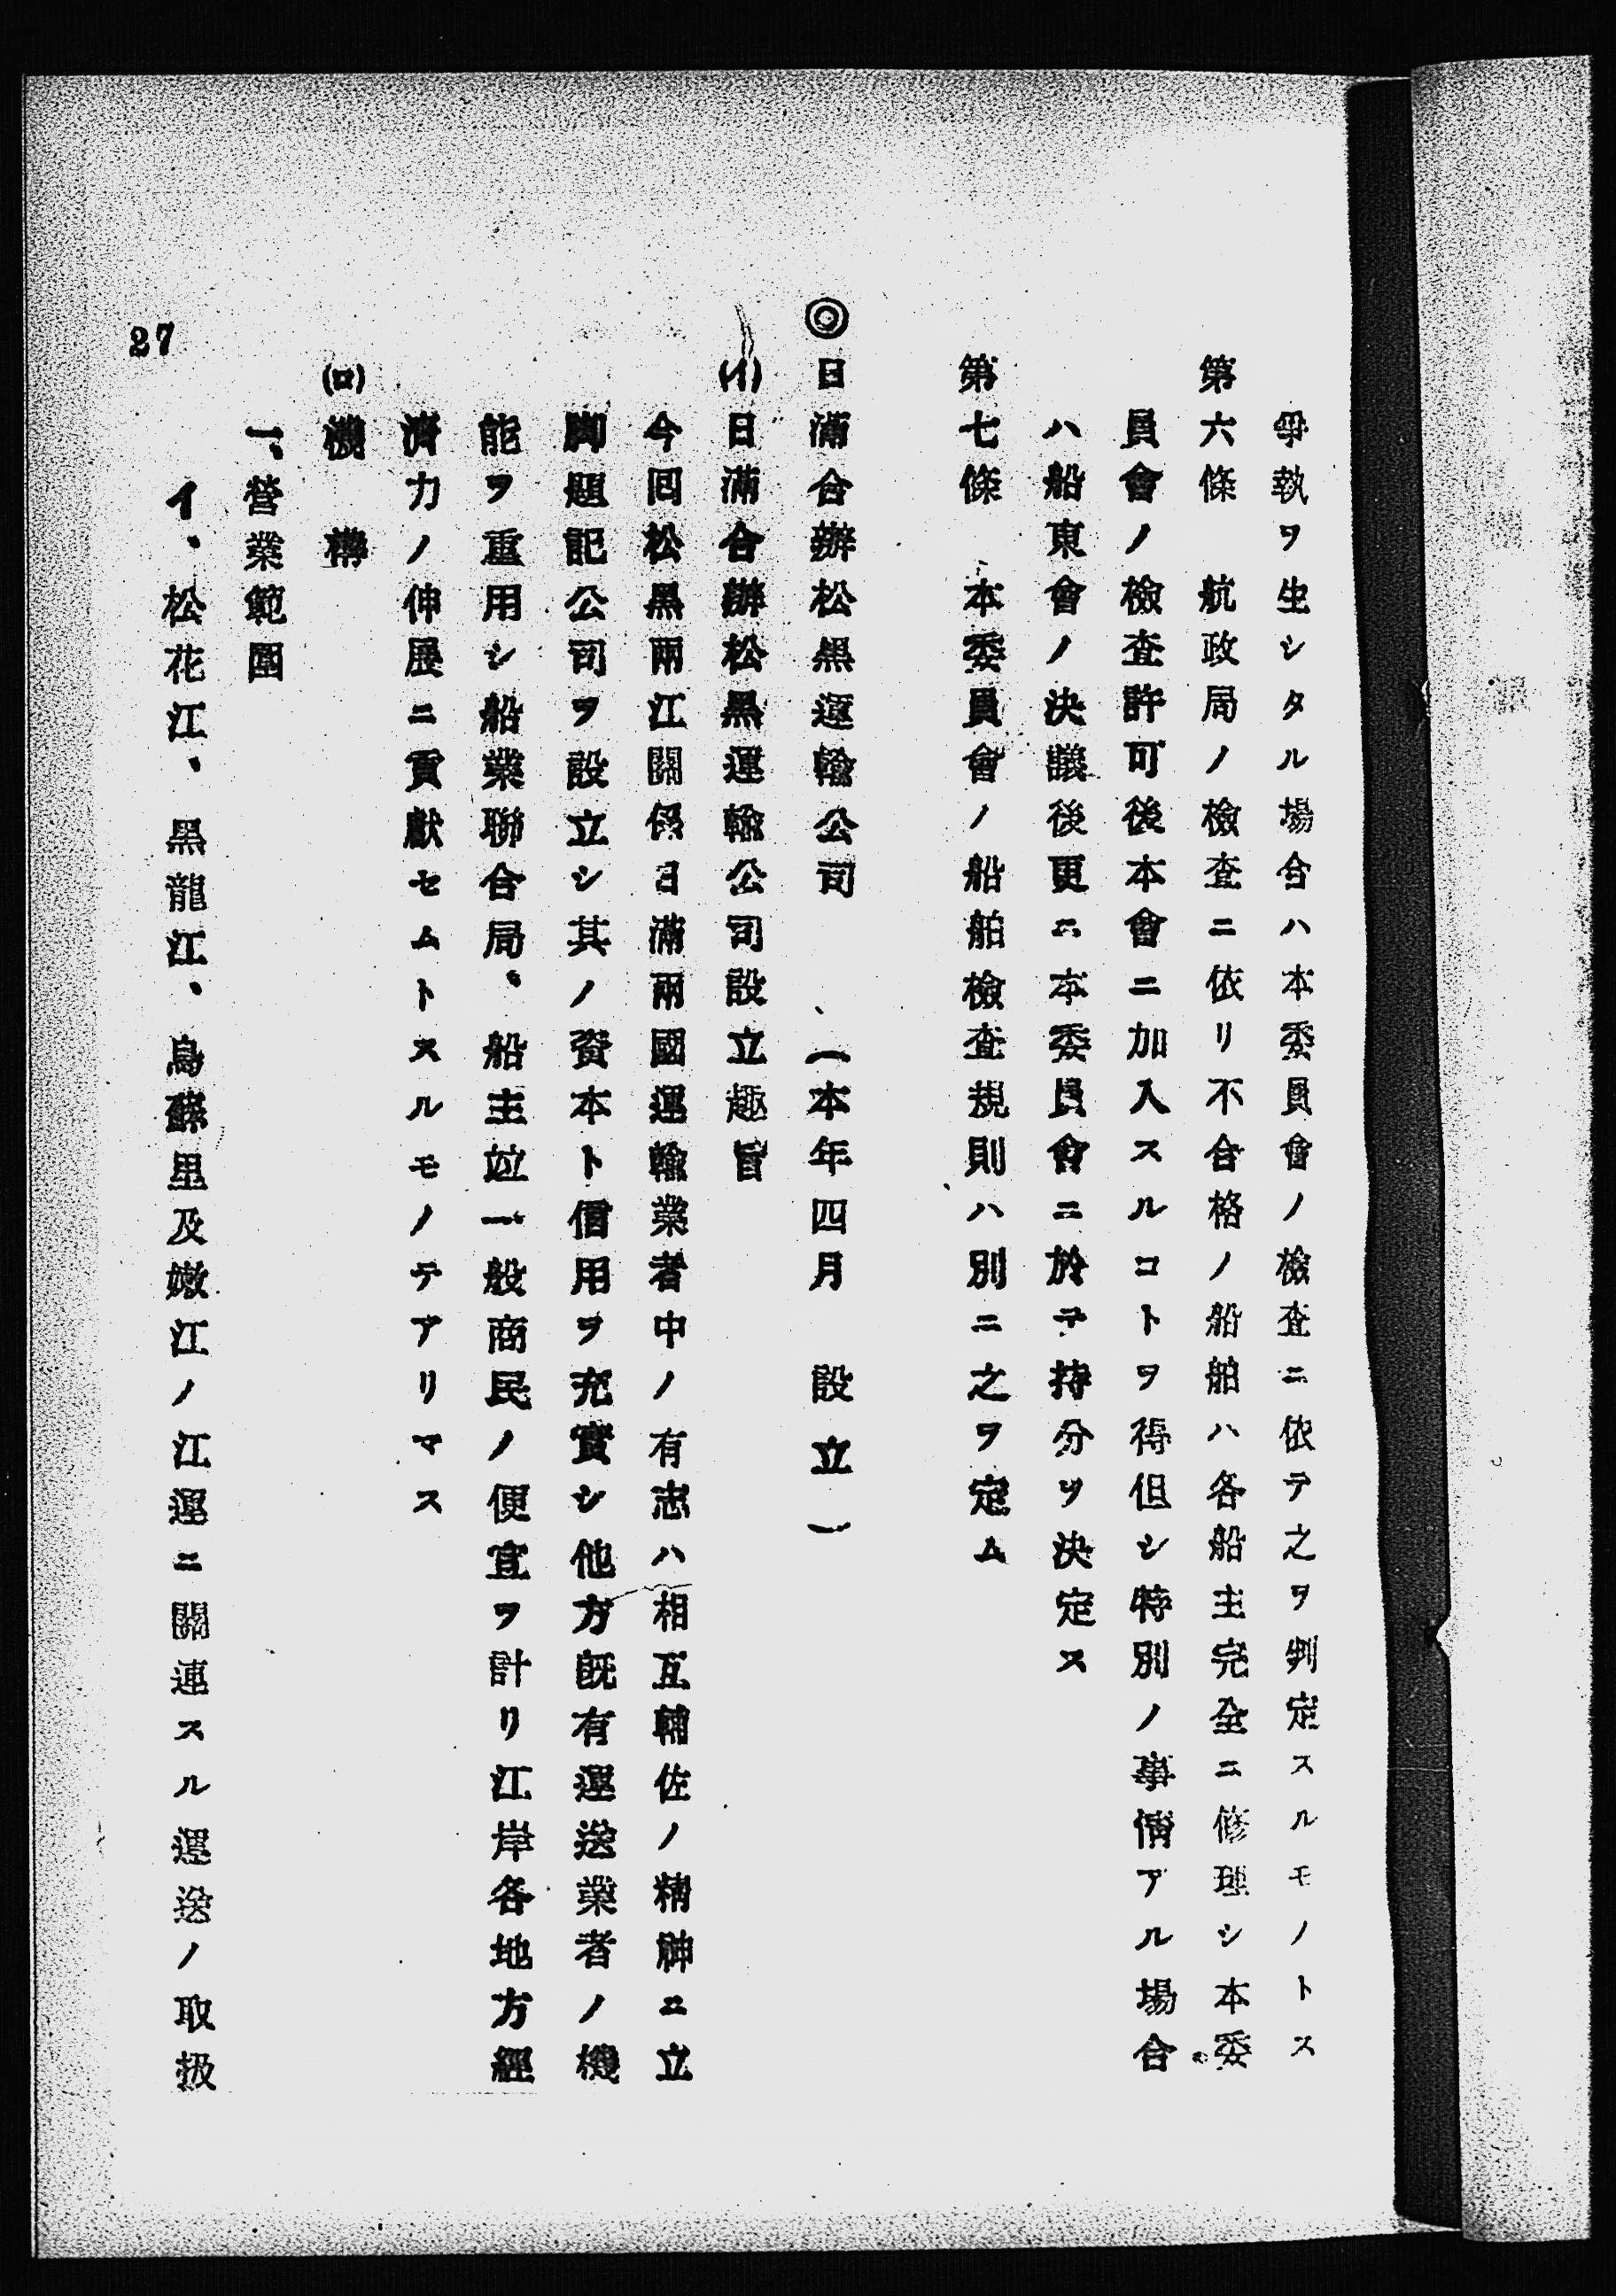 爭執ヲ生シタル場合ハ本委員會ノ檢査ニ依テ之ヲ判定スルモノトス
第六條　航政局ノ檢査ニ依リ不合格ノ船舶ハ各船主完全ニ修理シ本委
員會ノ檢査許可後本會ニ加入スルコトヲ得但シ特別ノ事情アル場合
ハ船東會ノ決議後更ニ本委員會ニ於テ持分ヲ決定ス
第七條　本委員會ノ船舶檢査規則ハ別ニ之ヲ定ム
◎日滿合辦松黑運輸公司　（本年四月　設立）
(イ)日滿合辦松黑運輸公司設立趣旨
今回松黑兩江關係日滿兩國運輸業者中ノ有志ハ相互輔佐ノ精神ニ立
脚題記公司ヲ設立シ其ノ資本ト信用ヲ充實シ他方既有運送業者ノ機
能ヲ重用シ船業聯合局、船主竝一般商民ノ便宜ヲ計リ江岸各地方經
濟力ノ伸展ニ貢獻セムトスルモノテアリマス
(ロ)機　構
一、營業範圍
イ、松花江、黑龍江、烏蘇里及嫩江ノ江運ニ關連スル運送ノ取扱
27